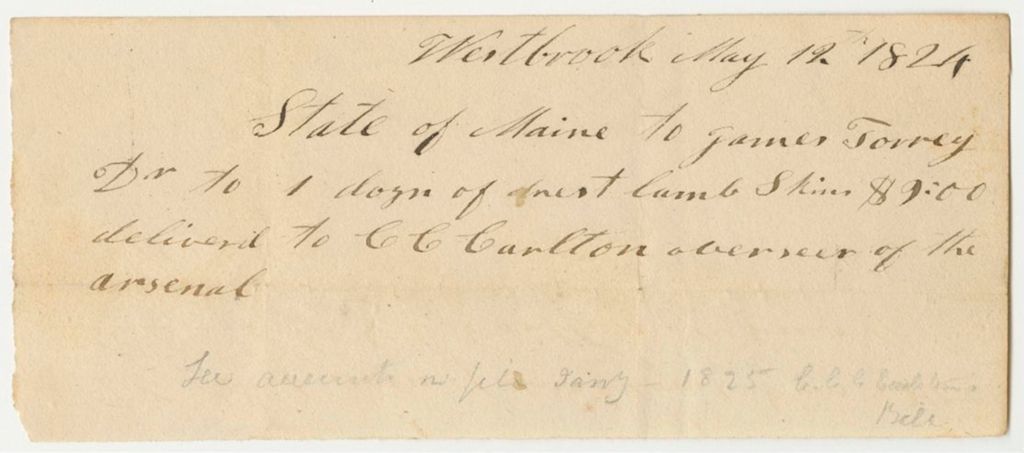 Westbrook May 19th 1824
State of Maine to James Torrey
Dr to 1 dozn of drest lamb Skins $9:00
deliverd to C C Carlton overseer of the
arsenal
See accounts on file Jany - 1825 C.C.
Bill